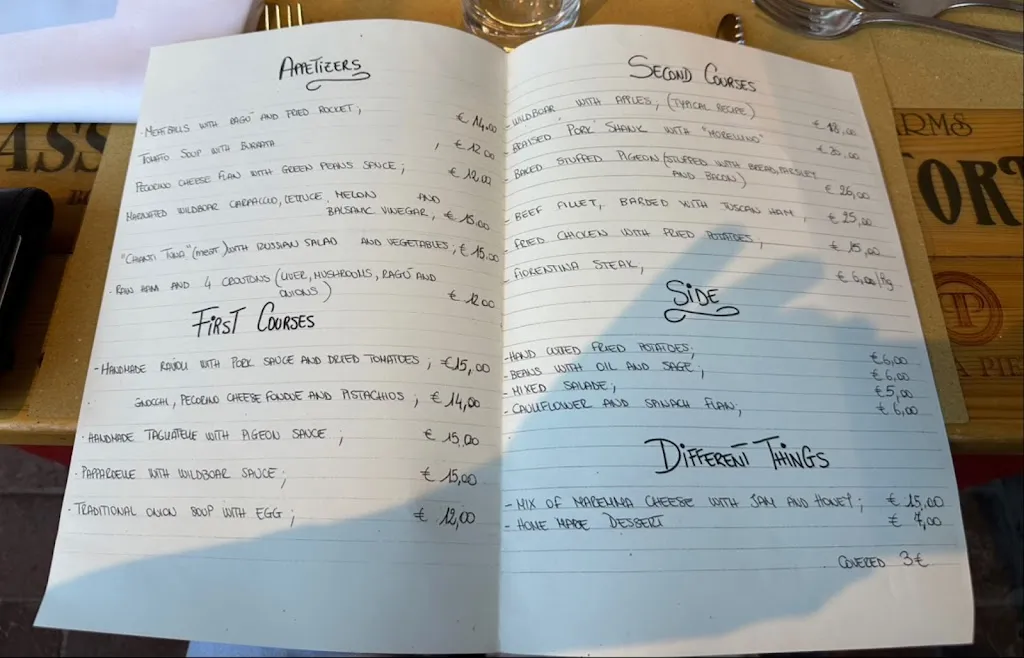 APPETIZERS
- MEATBALLS WITH RAGÚ AND FRIED ROCKET; € 14,00
TOMATO SOUP WITH BURRATA , € 12,00
PECORINO CHEESE FLAN WITH GREEN PEANS SAUCE; € 12,00
MARINATED WILDBOAR CARPACCIO, LETTUCE, MELON AND
BALSAMIC VINEGAR, € 15,00
"CHIANTI TUNA" (MEAT) WITH RUSSIAN SALAD AND VEGETABLES; € 15,00
- RAW HAM AND 4 CROUTONS (LIVER, MUSHROOMS, RAGÚ AND
ONIONS) € 12,00
FIRST COURSES
- HANDMADE RAVIOLI WITH PORK SAUCE AND DRIED TOMATOES; € 15,00
GNOCCHI, PECORINO CHEESE FONDUE AND PISTACHIOS; € 14,00
- HANDMADE TAGLIATELLE WITH PIGEON SAUCE; € 15,00
- PAPPARDELLE WITH WILDBOAR SAUCE; € 15,00
- TRADITIONAL ONION SOUP WITH EGG; € 12,00
SECOND COURSES
- WILDBOAR WITH APPLES, (TYPICAL RECIPE) € 18,00
- BRAISED PORK SHANK WITH "MORELLINO"
- BAKED STUFFED PIGEON (STUFFED WITH BREAD, PARSLEY
AND BACON) € 26,00
- BEEF FILLET, BARDED WITH TUSCAN HAM, € 25,00
- FRIED CHICKEN WITH FRIED POTATOES, € 15,00
- FIORENTINA STEAK,
SIDE
- HAND CUTED FRIED POTATOES; € 6,00
- BEANS WITH OIL AND SAGE; € 6,00
- MIXED SALADE; € 5,00
- CAULIFLOWER AND SPINACH FLAN; € 6,00
DIFFERENT THINGS
- MIX OF MAREMMA CHEESE WITH JAM AND HONEY; € 15,00
- HOME MADE DESSERT € 7,00
COVERED 3€
ASS
ARMS
ORT
A PIES